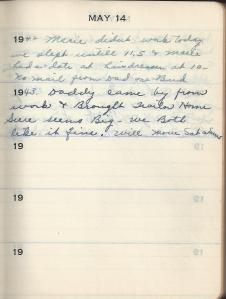 MAY 14
1942 Merie didnt work today
we slept untill 11.5 & Merie
had a date at hairdresser at 10-
No mail from Dad or Bud
1943. Daddy came by from
work & Brought Trailer Home
Sure seems Big - we Both
like it fine. Will move Saturday
19
19
19